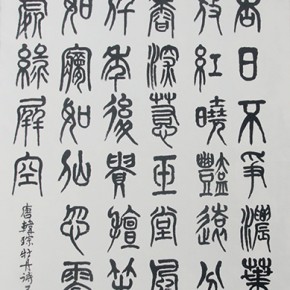 杏日不爭濃葉
放紅曉豔遠分
香深惹玉堂風
千年後貴擅笙
如夢如仙忽零
綠屏空
唐韓琮牡丹詩